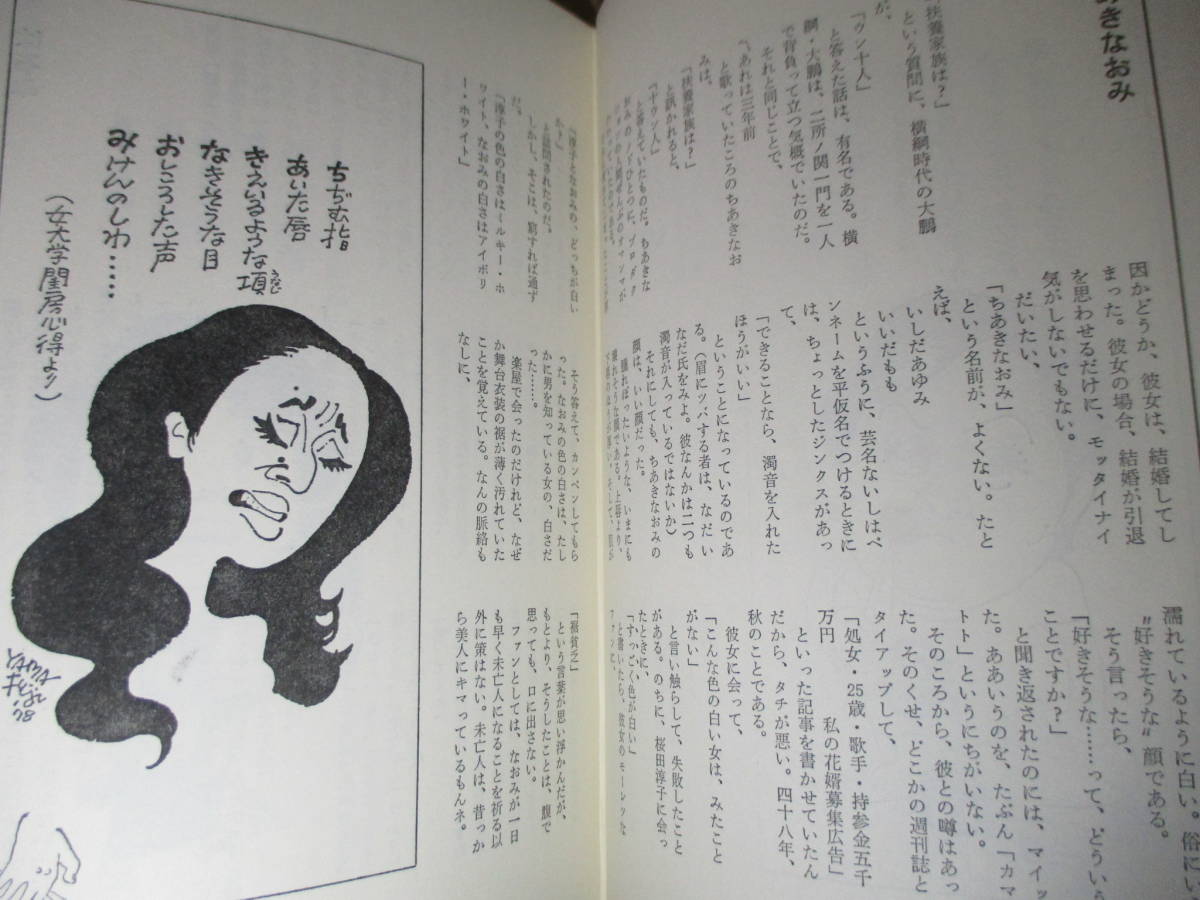 あきなおみ
「扶養家族は？」
という質問に、横綱時代の大鵬
が、
「ウン十人」
と答えた話は、有名である。横
綱・大鵬は、二所ノ関一門を一人
で背負って立つ気概でいたのだ。
それと同じことで、
〽あれは三年前
と歌っていたころのちあきなお
みは、
「扶養家族は？」
と訊かれると、
「十ウン人」
と答えていたものだ。ちあきな
因かどうか、彼女は、結婚してし
まった。彼女の場合、結婚が引退
を思わせるだけに、モッタイナイ
気がしないでもない。
だいたい、
「ちあきなおみ」
という名前が、よくない。たと
えば、
いしだあゆみ
いいだもも
というふうに、芸名ないしはペ
ンネームを平仮名でつけるときに
は、ちょっとしたジンクスがあっ
て、
「できることなら、濁音を入れた
ほうがいい」
ということになっているのであ
る。（眉にツバする者は、なだい
なだ氏をみよ。彼なんかは二つも
濁音が入っているではないか）
それにしても、ちあきなおみの
顔は、いい顔だった。
腫れぼったいような、いまにも
濡れているように白い。俗にい
〝好きそうな〟顔である。
そう言ったら、
「好きそうな……って、どういう
ことですか？」
と聞き返されたのには、マイッ
た。ああいうのを、たぶん「カマ
トト」というにちがいない。
そのころから、彼との噂はあっ
た。そのくせ、どこかの週刊誌と
タイアップして、
「処女・25歳・歌手・持参金五千
万円　私の花婿募集広告」
といった記事を書かせていたん
だから、タチが悪い。四十八年、
秋のことである。
彼女に会って、
「こんな色の白い女は、みたこと
がない」
と言い触らして、失敗したこと
がある。のちに、桜田淳子に会っ
たときに、
「すっごく色が白い」
と書いたら、彼女のモーレツな
「淳子となおみの、どっちが白い
か？」
と詰問されたのだ。
しかし、そこは、窮すれば通ず
だ。
「淳子の色の白さはミルキー・ホ
ワイト、なおみの白さはアイボリ
ー・ホワイト」
そう答えて、カンベンしてもら
った。なおみの色の白さは、たし
かに男を知っている女の、白さだ
った……。
楽屋で会ったのだけれど、なぜ
か舞台衣装の裾が薄く汚れていた
ことを覚えている。なんの脈絡も
なしに、
「裾貧乏」
という言葉が思い浮かんだが、
もとより、そうしたことは、腹で
思っても、口に出さない。
ファンとしては、なおみが一日
も早く未亡人になることを祈る以
外に策はない。未亡人は、昔っか
ら美人にキマっているもんネ。
ちぢむ指
あいた唇
きえいるような項
うなじ
なきそうな目
おしころした声
みけんのしわ……
（女大学閨房心得より）
YAMA
'78